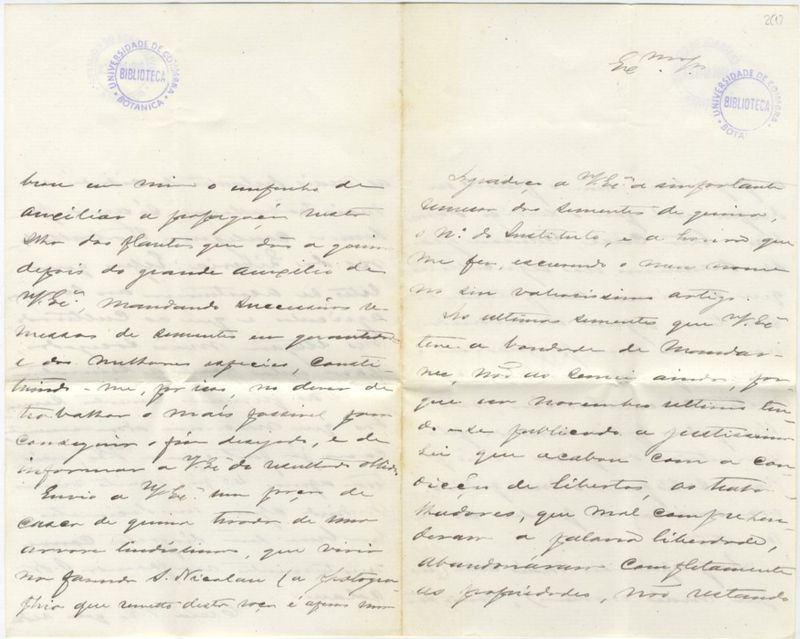 UNIVERSIDADE DE COIMBRA
BIBLIOTECA
BOTANICA
em mim o empenho de
auxiliar a propagação nesta
Ilha das plantas que dão a quina
depois do grande auxilio de
V. Exª mandando successivas re-
messas de sementes em quantidade
e das melhores especies, consti-
tuindo-me, por isso, no dever de
trabalhar o mais possivel para
conseguir o fim desejado, e de
informar a V. Exª do resultado obtido.
Envio a V. Exª um poção de
casca de quina tirada de uma
arvore lindissima, que vivia
na fazenda S. Nicolau (a photogra-
phia que remetto desta roça é apenas uma
UNIVERSIDADE DE COIMBRA
BIBLIOTECA
BOTA
Agradeço a V. Exª a importante
remessa das sementes de quina,
o Nº. do Instituto, e a honra que
me fez, escrevendo o meu nome
no seu valiosissimo artigo.
As ultimas sementes que V. Exª
teve a bondade de mandar-
me, não as semeei ainda, por
que em novembro ultimo ten-
do-se publicado a justissima
Lei que acabou com a con-
dição de libertos, os traba-
lhadores, que mal comprehen-
deram a palavra liberdade,
abandonaram completamente
as propriedades, não restando